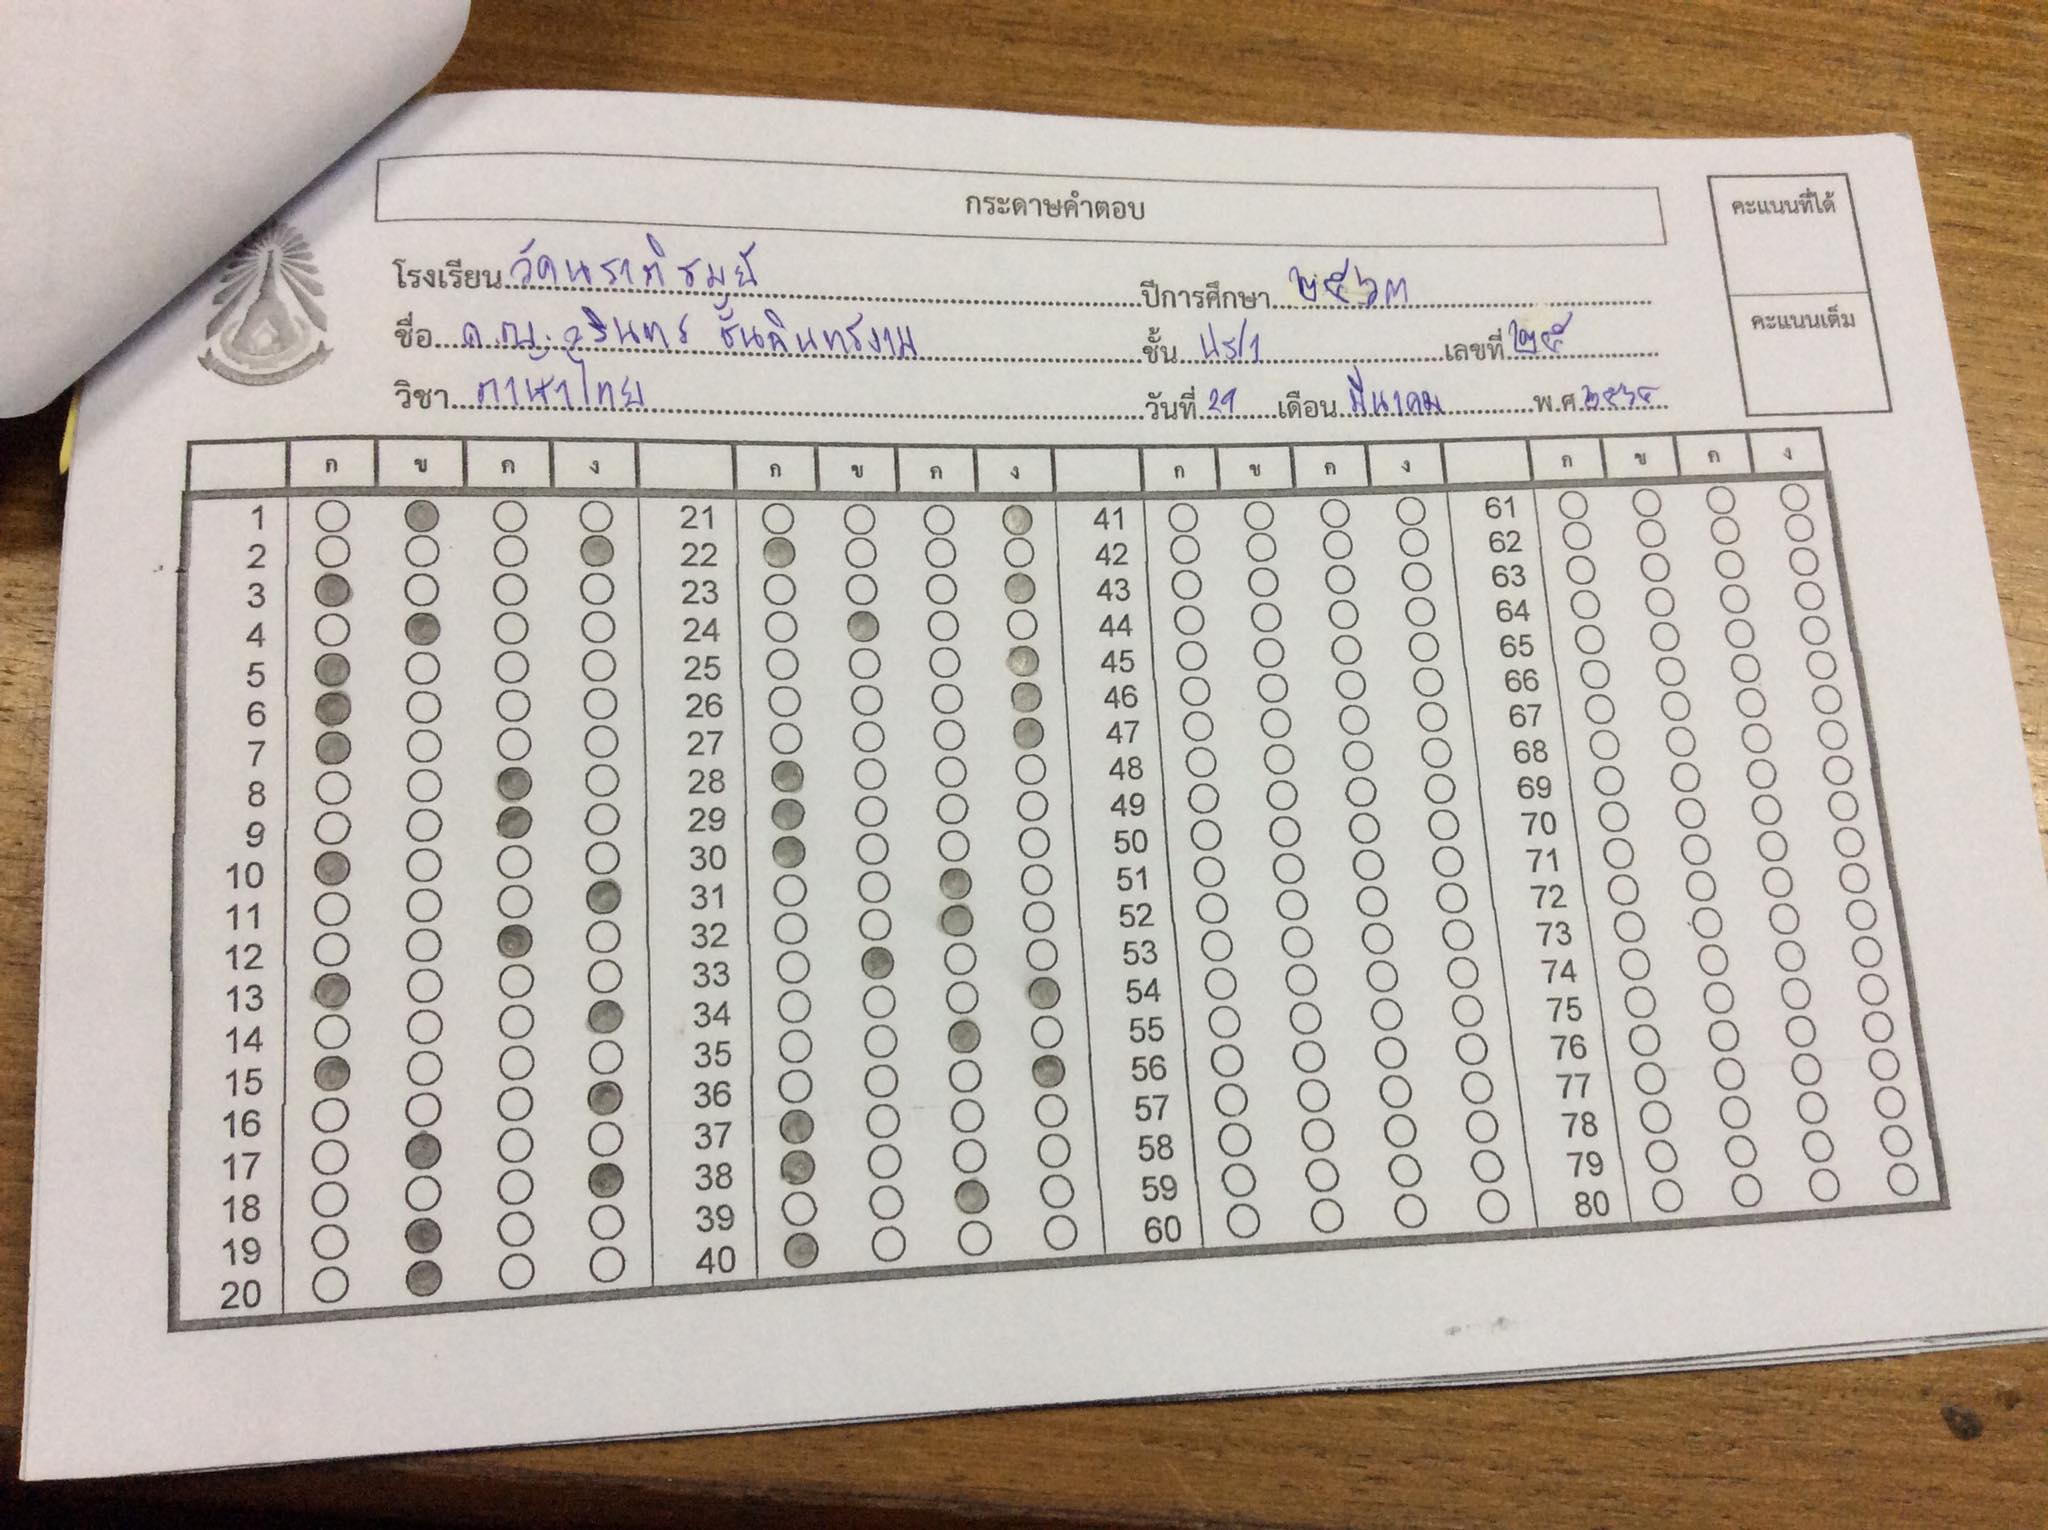 กระดาษคำตอบ
คะแนนที่ได้
คะแนนเต็ม
โรงเรียน วัดนราภิรมย์ ปีการศึกษา ๒๕๖๓
ชื่อ ด.ญ. ชั้น ป.5/1 เลขที่ ๒๕
วิชา ภาษาไทย วันที่ 29 เดือน มีนาคม พ.ศ. ๒๕๖๔
ก ข ค ง ก ข ค ง ก ข ค ง ก ข ค ง
1 21 41 61
2 22 42 62
3 23 43 63
4 24 44 64
5 25 45 65
6 26 46 66
7 27 47 67
8 28 48 68
9 29 49 69
10 30 50 70
11 31 51 71
12 32 52 72
13 33 53 73
14 34 54 74
15 35 55 75
16 36 56 76
17 37 57 77
18 38 58 78
19 39 59 79
20 40 60 80